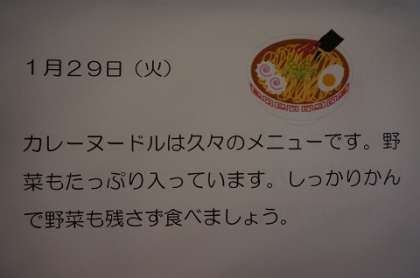 １月２９日（火）
カレーヌードルは久々のメニューです。野
菜もたっぷり入っています。しっかりかん
で野菜も残さず食べましょう。